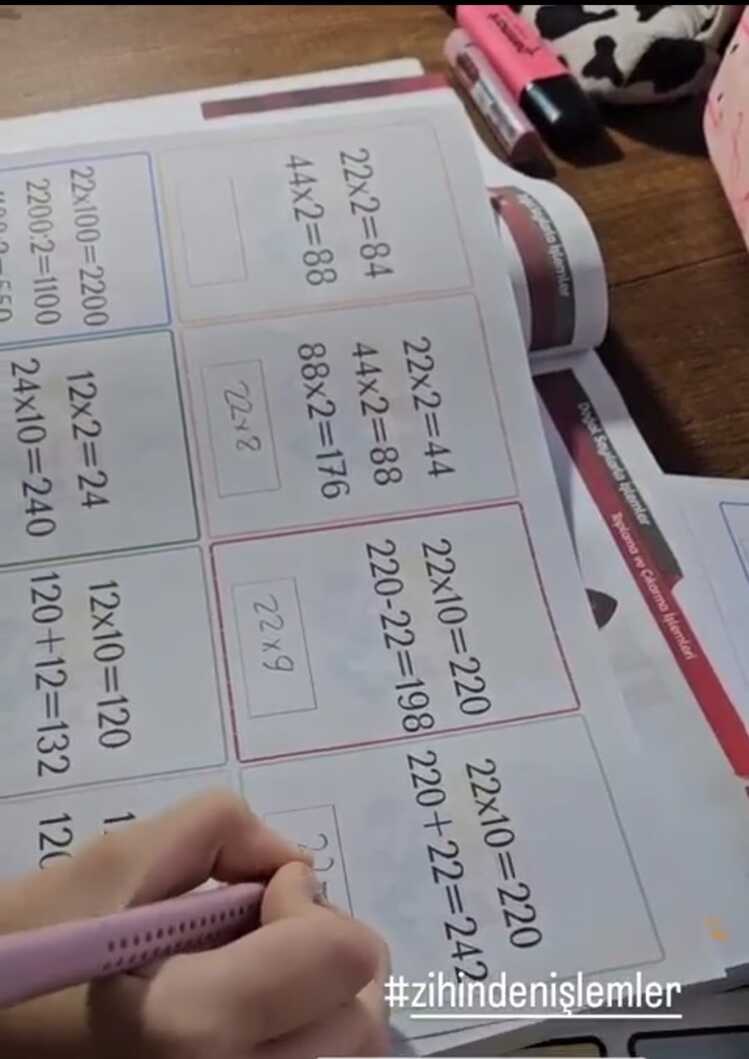 Sayılarla İşlemler
Doğal Sayılarla İşlemler
Toplama ve Çıkarma İşlemleri
22x2=84
44x2=88
22x2=44
44x2=88
88x2=176
22x8
22x10=220
220-22=198
22x9
22x10=220
220+22=242
22
22x100=2200
2200:2=1100
12x2=24
24x10=240
12x10=120
120+12=132
#zihindenişlemler